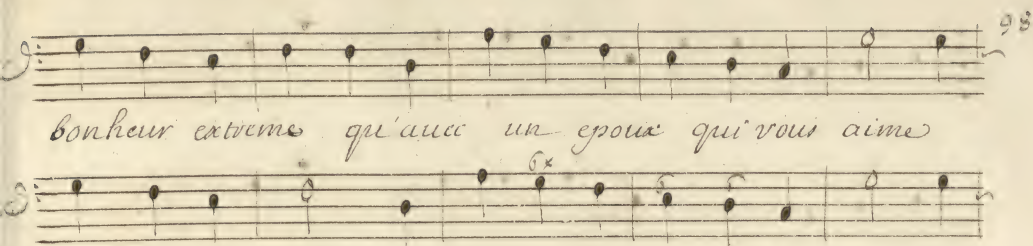 98
bonheur extreme qu'auec un epoux qui vous aime
6x
6 6